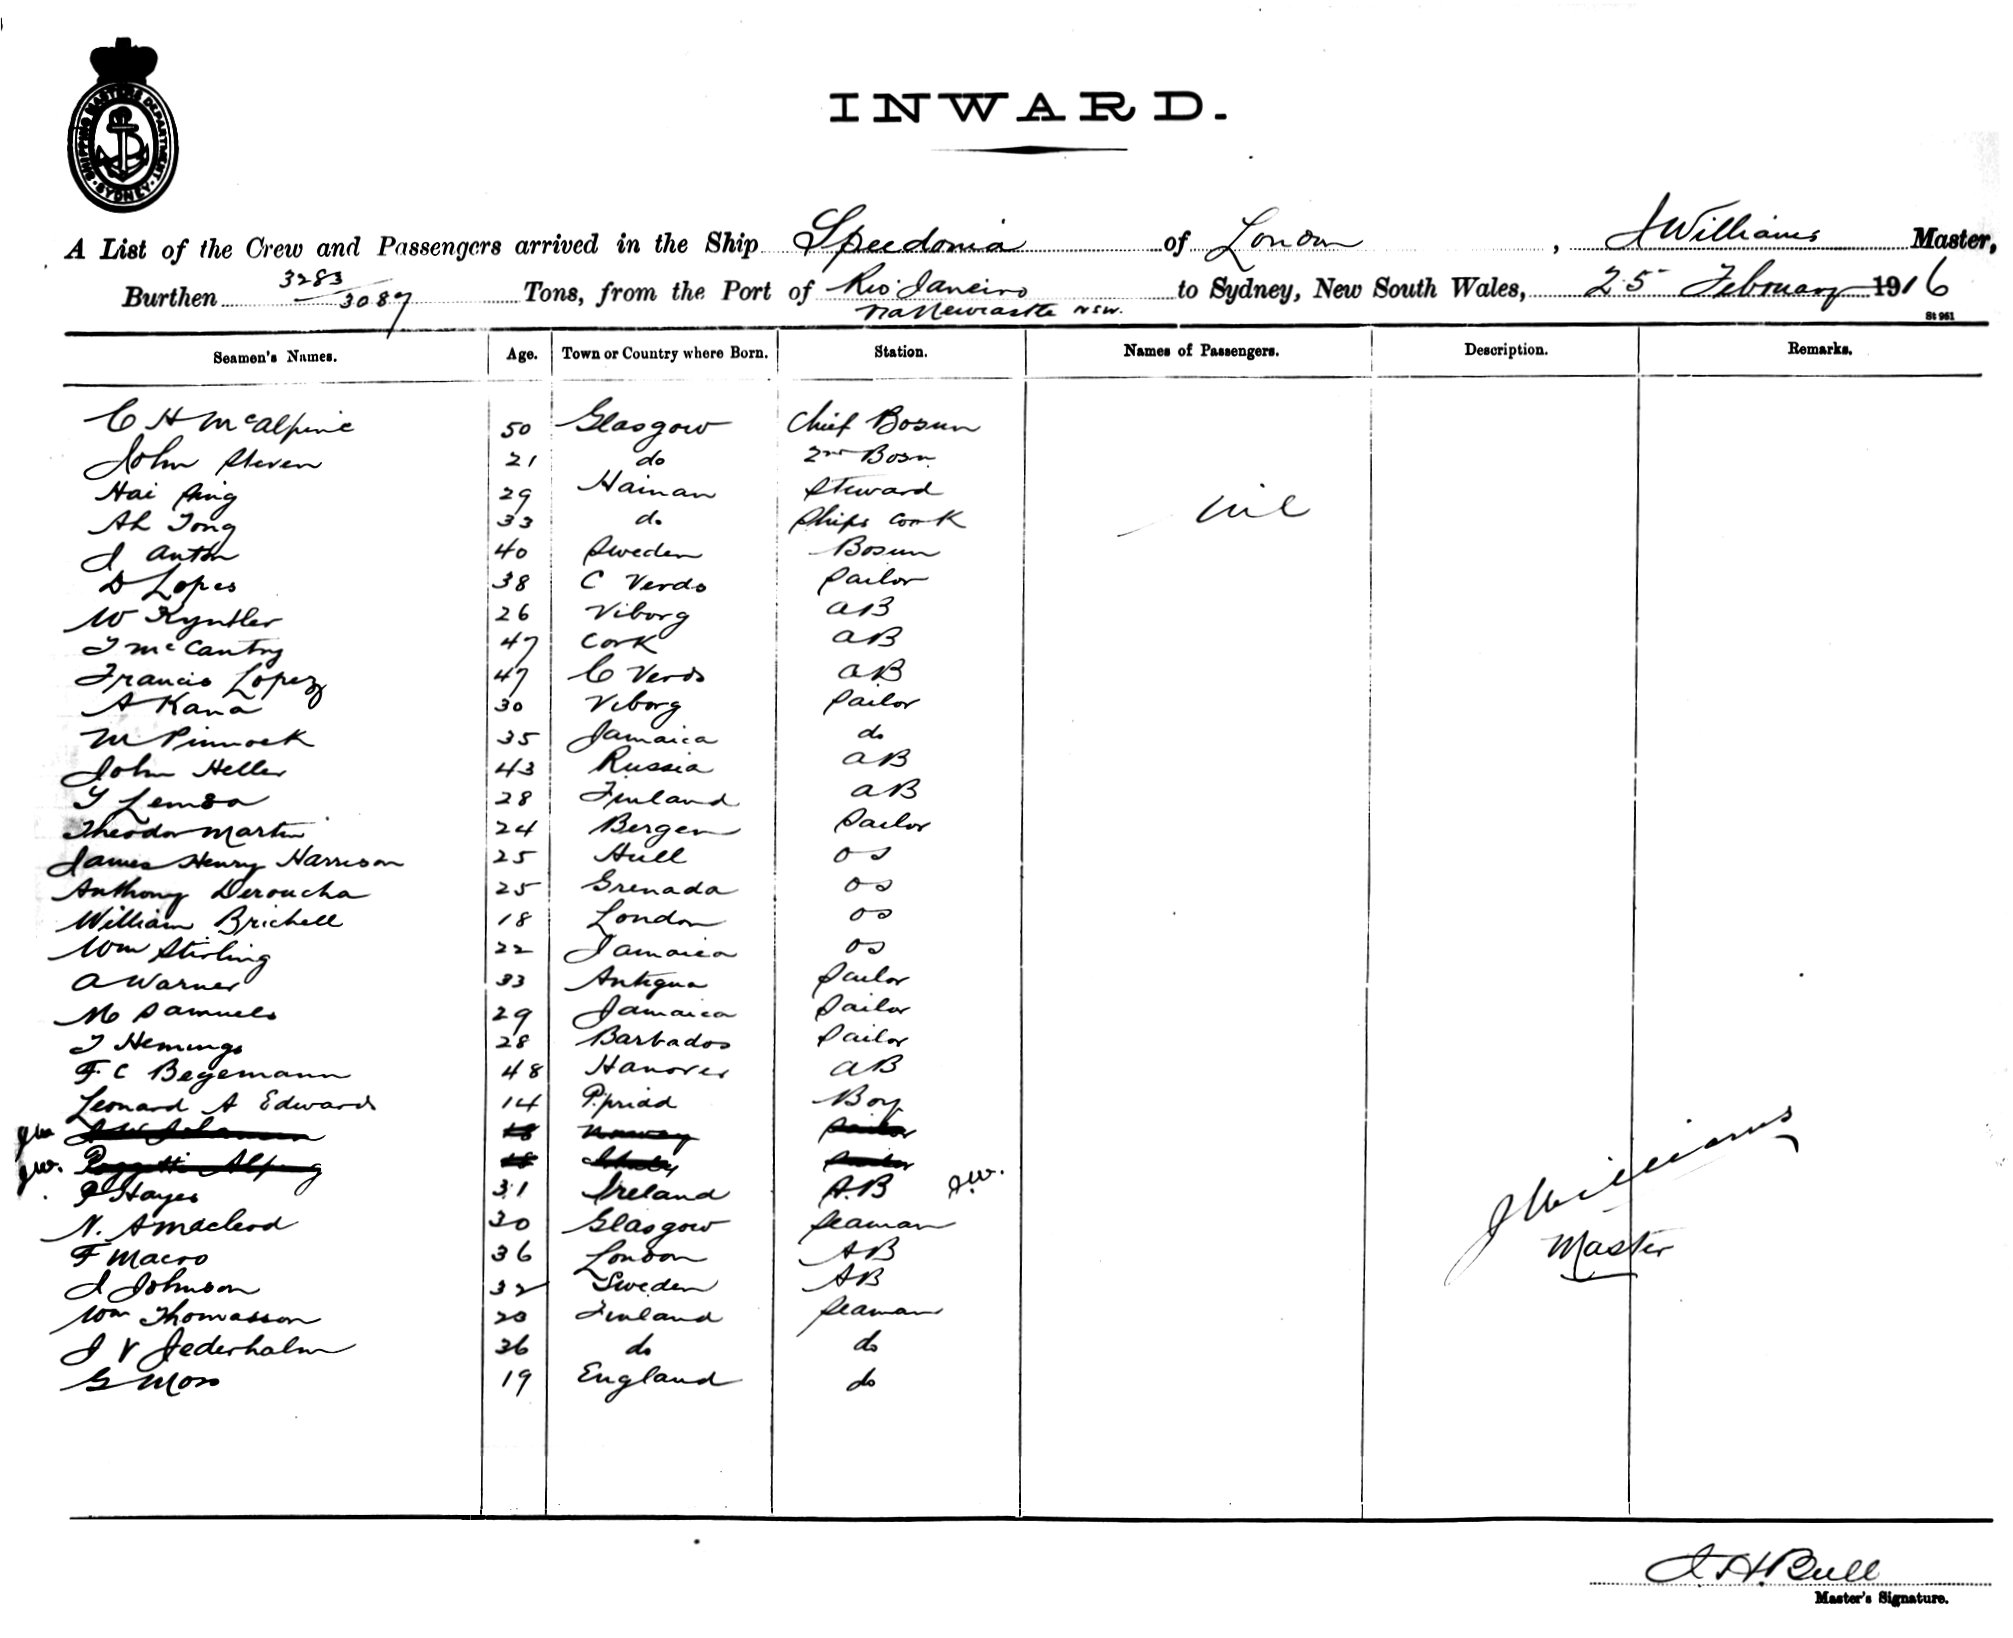 SHIPPING MASTERS DEPARTMENT · SYDNEY ·
INWARD.
A List of the Crew and Passengers arrived in the Ship Speedonia of London, J Williams Master,
Burthen 3283/3087 Tons, from the Port of Rio Janeiro to Sydney, New South Wales, 25 February 1916
via Newcastle NSW.
St 961
Seamen's Names. Age. Town or Country where Born. Station. Names of Passengers. Description. Remarks.
C H McAlpine 50 Glasgow Chief Bosun
John Steven 21 do 2nd Bosn
Hai Sing 29 Hainan Steward
nil
Ah Tong 33 do Ships Cook
J Anton 40 Sweden Bosun
D Lopes 38 C Verds Sailor
W 26 Viborg AB
T McCantry 47 Cork AB
Francis Lopez 47 C Verds AB
A Kana 30 Viborg Sailor
M Pinnock 35 Jamaica do
John Heller 43 Russia AB
28 Finland AB
Theodor Martin 24 Bergen Sailor
James Henry Harrison 25 Hull OS
Anthony Deroucha 25 Grenada OS
William Brichell 18 London OS
Wm Stirling 22 Jamaica OS
A Warner 33 Antigua Sailor
M Samuels 29 Jamaica Sailor
T Hemings 28 Barbados Sailor
F. C Begemann 48 Hanover AB
Leonard A Edwards 14 Boy
JW 18 Norway Sailor
JW. 18 Sailor
P Hayes 31 Ireland A.B J.W.
N. A Macleod 30 Glasgow Seaman
J Williams
Master
F Macro 36 London AB
J Johnson 32 Sweden AB
Wm Thomasson 20 Finland Seaman
J V Jederholm 36 do do
G Moss 19 England do
J. H. Bull
Master's Signature.